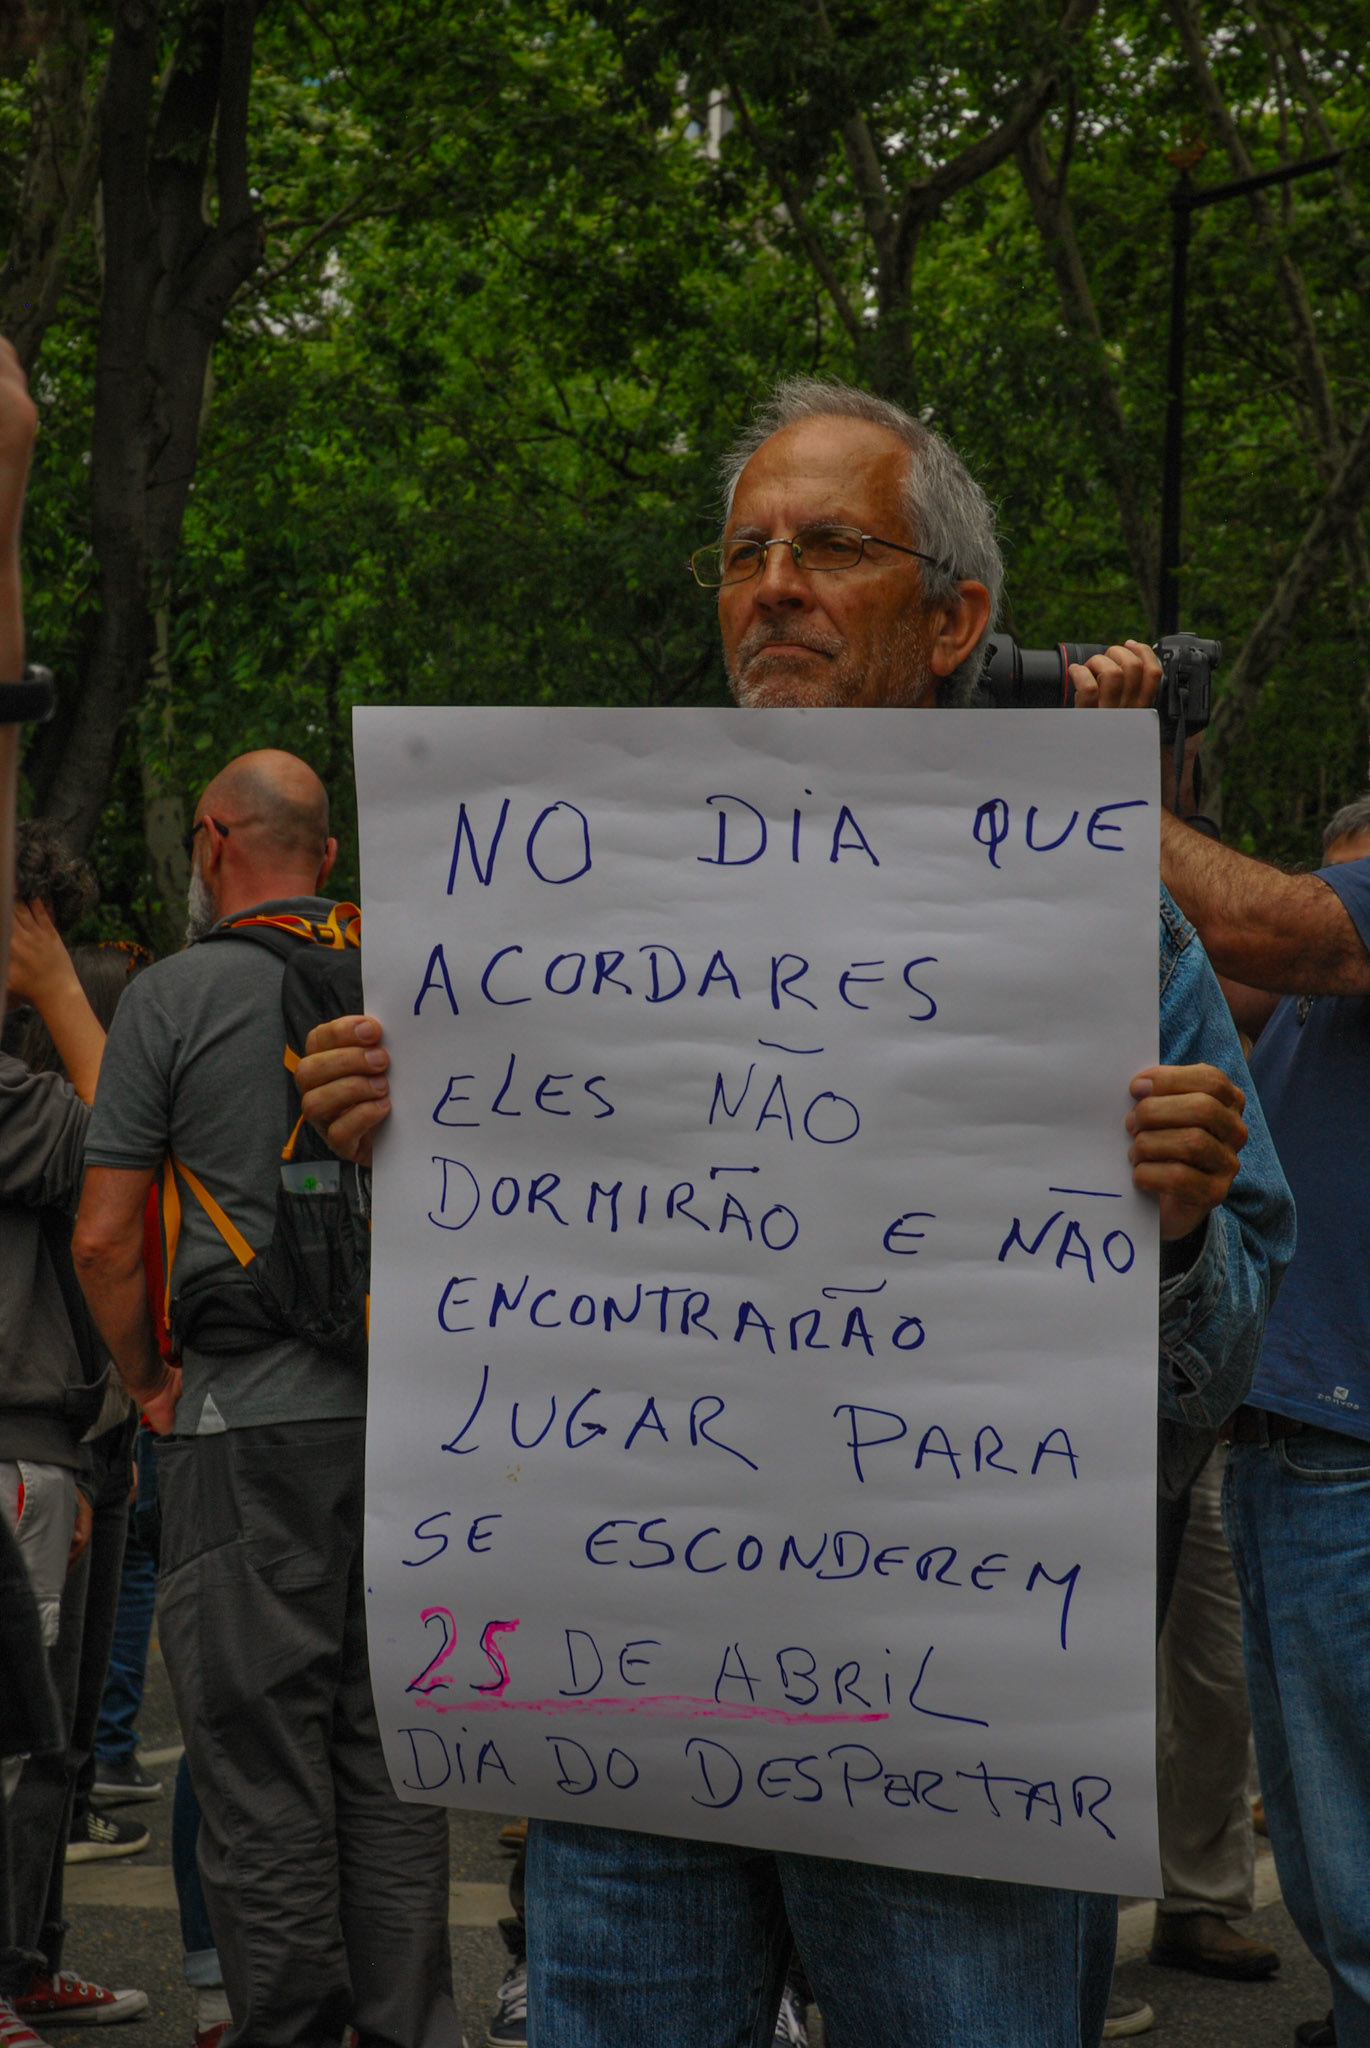 NO DiA QUE
ACORDARES
ELES NÃO
DORMIRÃO E NÃO
ENCONTRARÃO
LUGAR PARA
SE ESCONDEREM
25 DE ABRiL
DiA DO DESPERTAR